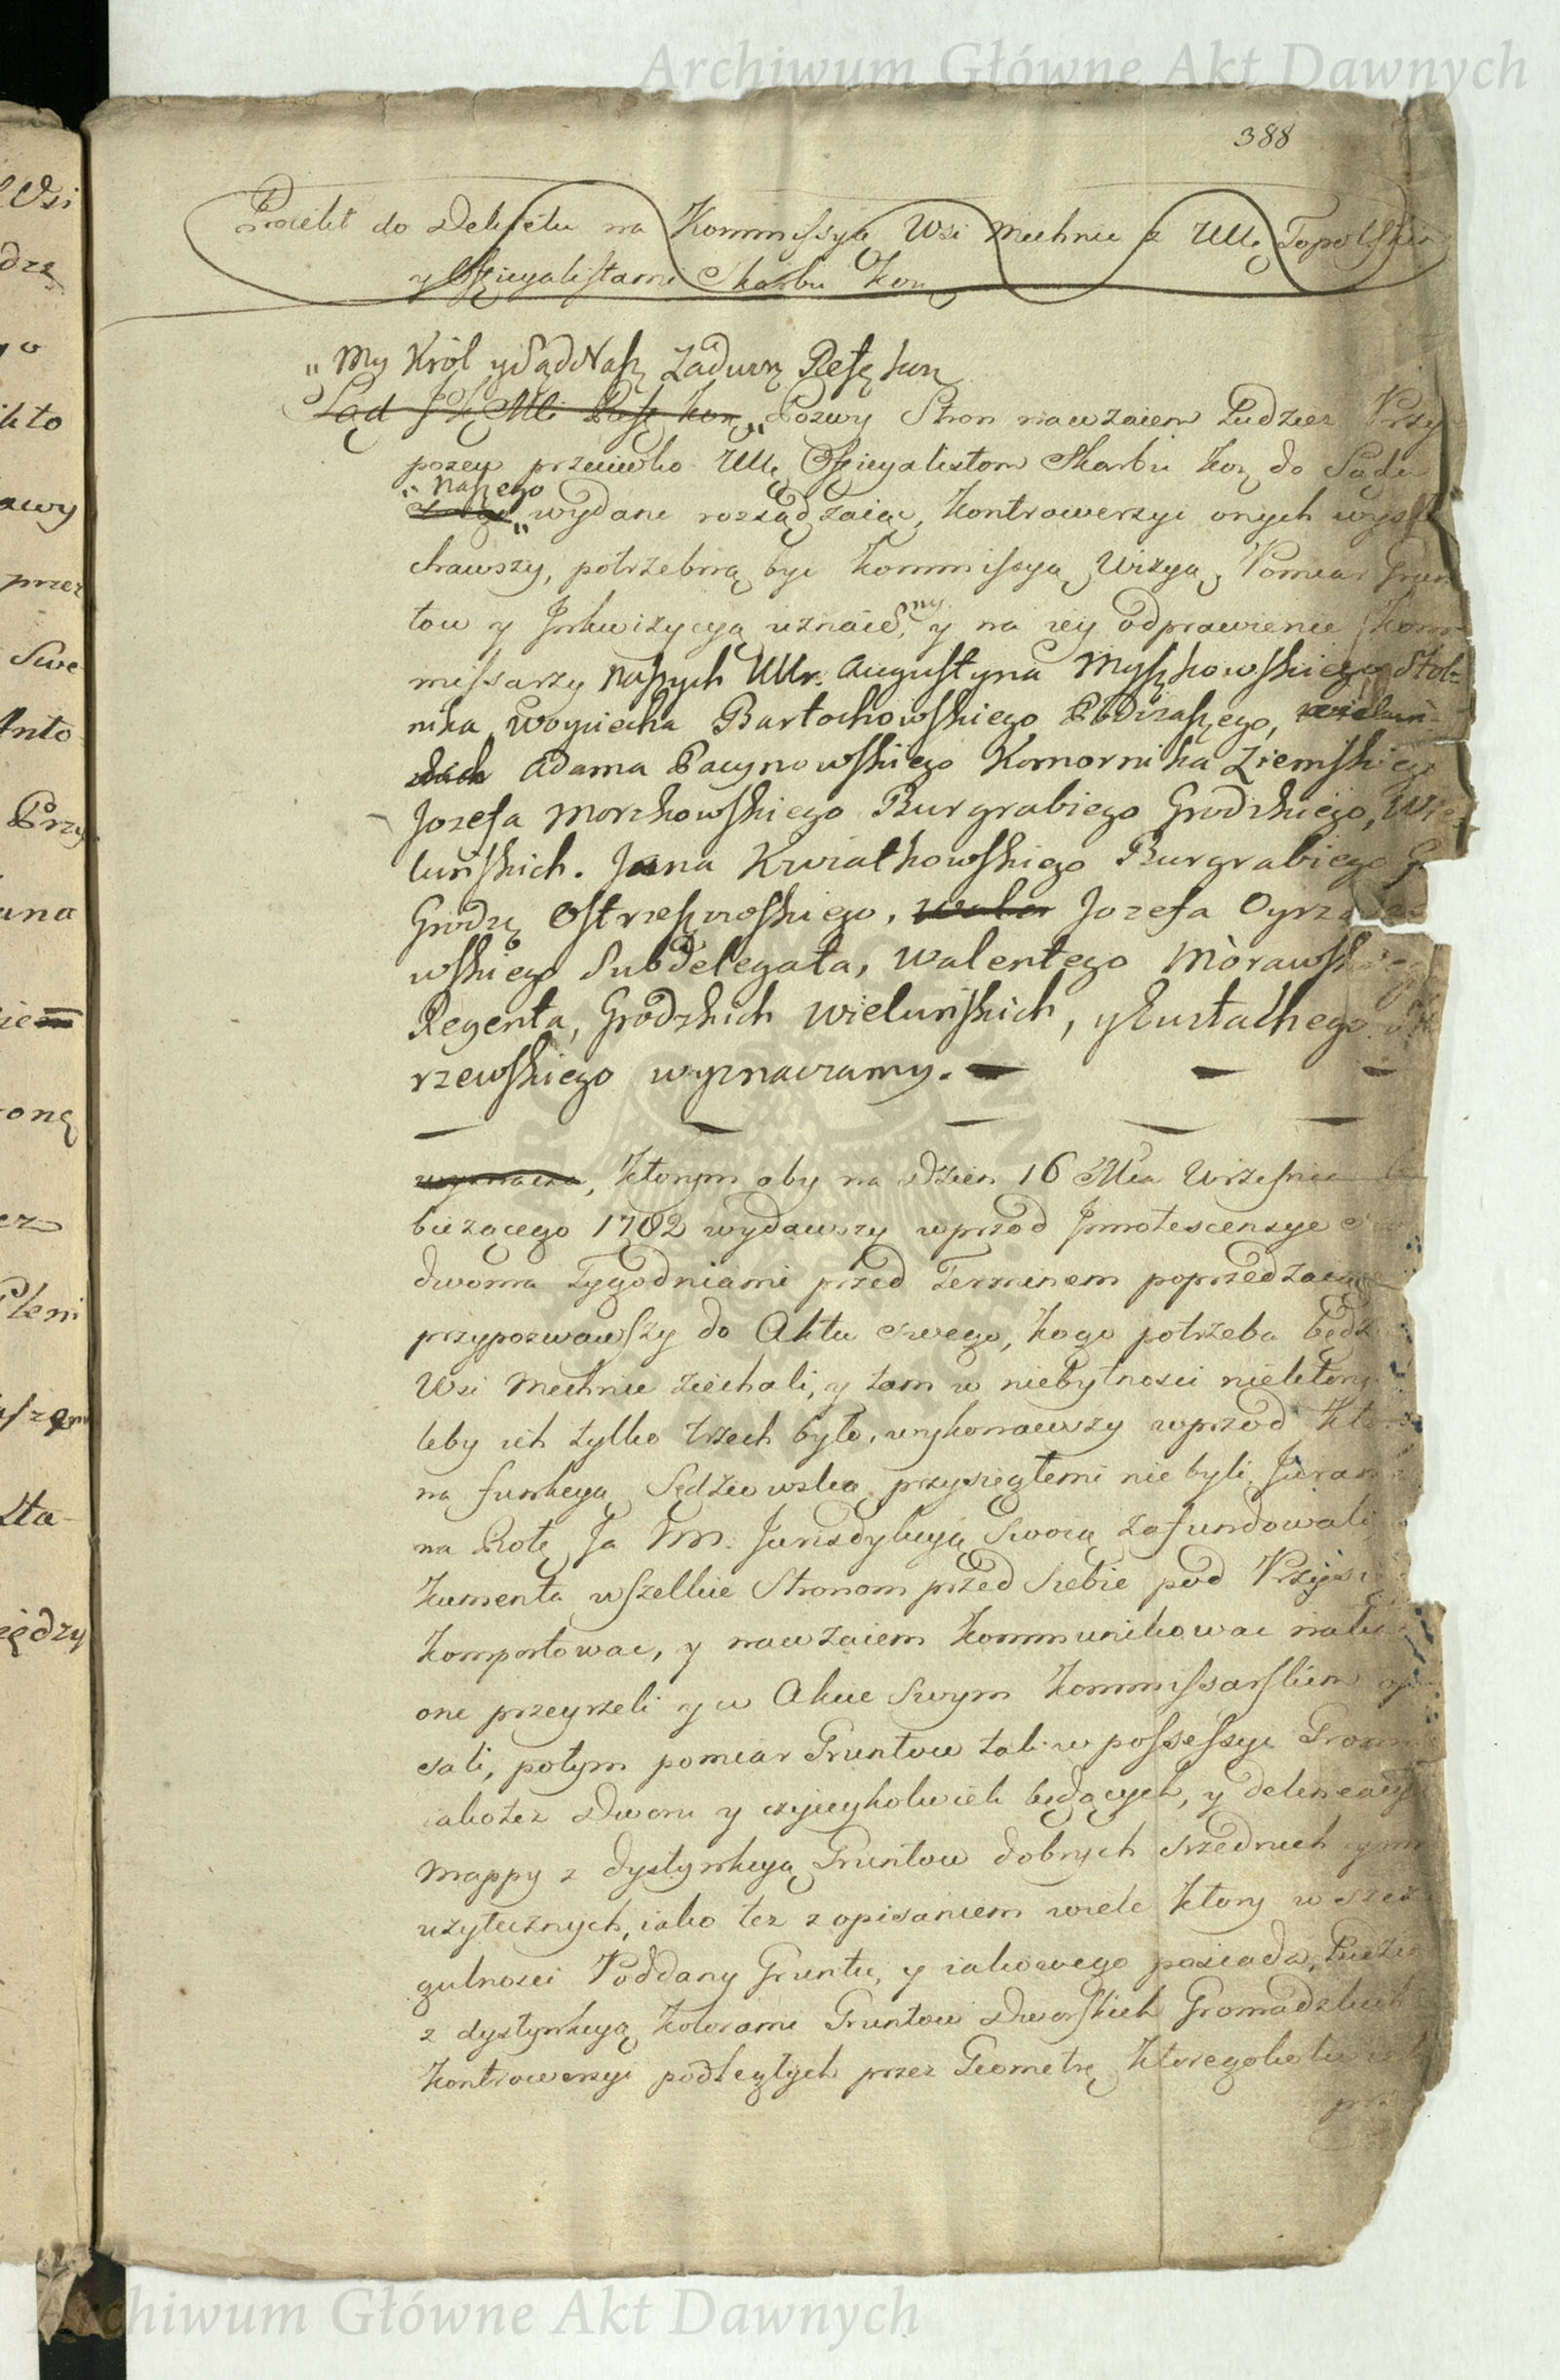 Archiwum Główne Akt Dawnych
388
Proiekt do Dekretu na Kommissyą Wsi Mechnic z UUr Topolskim
y Officyalistami Skarbu Kor
" My Król y Sąd Nasz Zadwor Refer kor
Sąd J K Mci Refer Kor " Pozwy Stron nawzaiem Tudziesz Przy
pozew przeciwko UUr Officyalistom Skarbu Kor do Sądu
" Naszego
" wydane rozsądzaiąc, Kontrowersyi onych wysłu
chawszy, potrzebną być Kommissyą Wizyą, Pomiar Grun
tow y Inkwizycyą uznaie my, y na iey odprawienie Kom
missarzy Naszych UUr. Augustyna Myszkowskiego Stol=
nika Woyciecha Bartochowskiego Podczaszego,
Adama Pacynowskiego Komornika Ziemskiego
Jozefa Morzkowskiego Burgrabiego Grodzkiego, Wie
luńskich. Jana Kwiatkowskiego Burgrabiego G
Grodz Ostrzeszowskiego, Jozefa Oyrza
wskiego Subdelegata, Walentego Morawskieg
Regenta, Grodzkich Wieluńskich, y Eustachego
rzewskiego wyznaczamy. —
wyznacza, Ktorym aby na Dzien 16 Mca Wrzesnia
bieżącego 1782 wydawszy wprzod Innotescencye
dwoma Tygodniami przed Terminem poprzedzaiące
przypozwawszy do Aktu swego, kogo potrzeba będz
Wsi Mechnic ziechali, y tam w niebytnosci niektory
leby ich tylko trzech było, wykonawszy wprzod Ktor
na funkcyą Sędziowską przysięgłemi nie byli, Juram
na Rotę Ja NN. Jurisdykcyą Swoią zafundowali
kumenta wszelkie Stronom przed Siebie pod Przysię
Komportowac, y nawzaiem Kommunikowac naka
one przeyrzeli y w Akcie Swym Kommissarskim op
sali, potym pomiar Gruntow tak w possessyi Grom
iako tez Dworu y czyieykolwiek będących, y delineacyą
Mappy z dystynkcyą Gruntow dobrych srzednich y nie
uzytecznych, iako tez z opisaniem wiele Ktory w szcze
gulnosci Poddany Gruntu, y iakowego posiada, Tudziesz
z dystynkcyą Kolorami Gruntow Dworskich Gromadzkich
Kontrowersyi podległych przez Geometrę Ktoregokolwiek
prz
Archiwum Główne Akt Dawnych